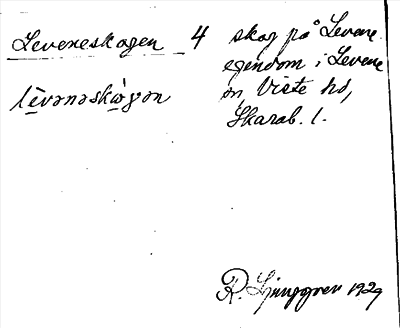 Leveneskogen 4 skog på Levene
egendom i Levene
sn, Viste hd,
Skarab. l.
lèvənəskòɣən
R. Ljunggren 1929